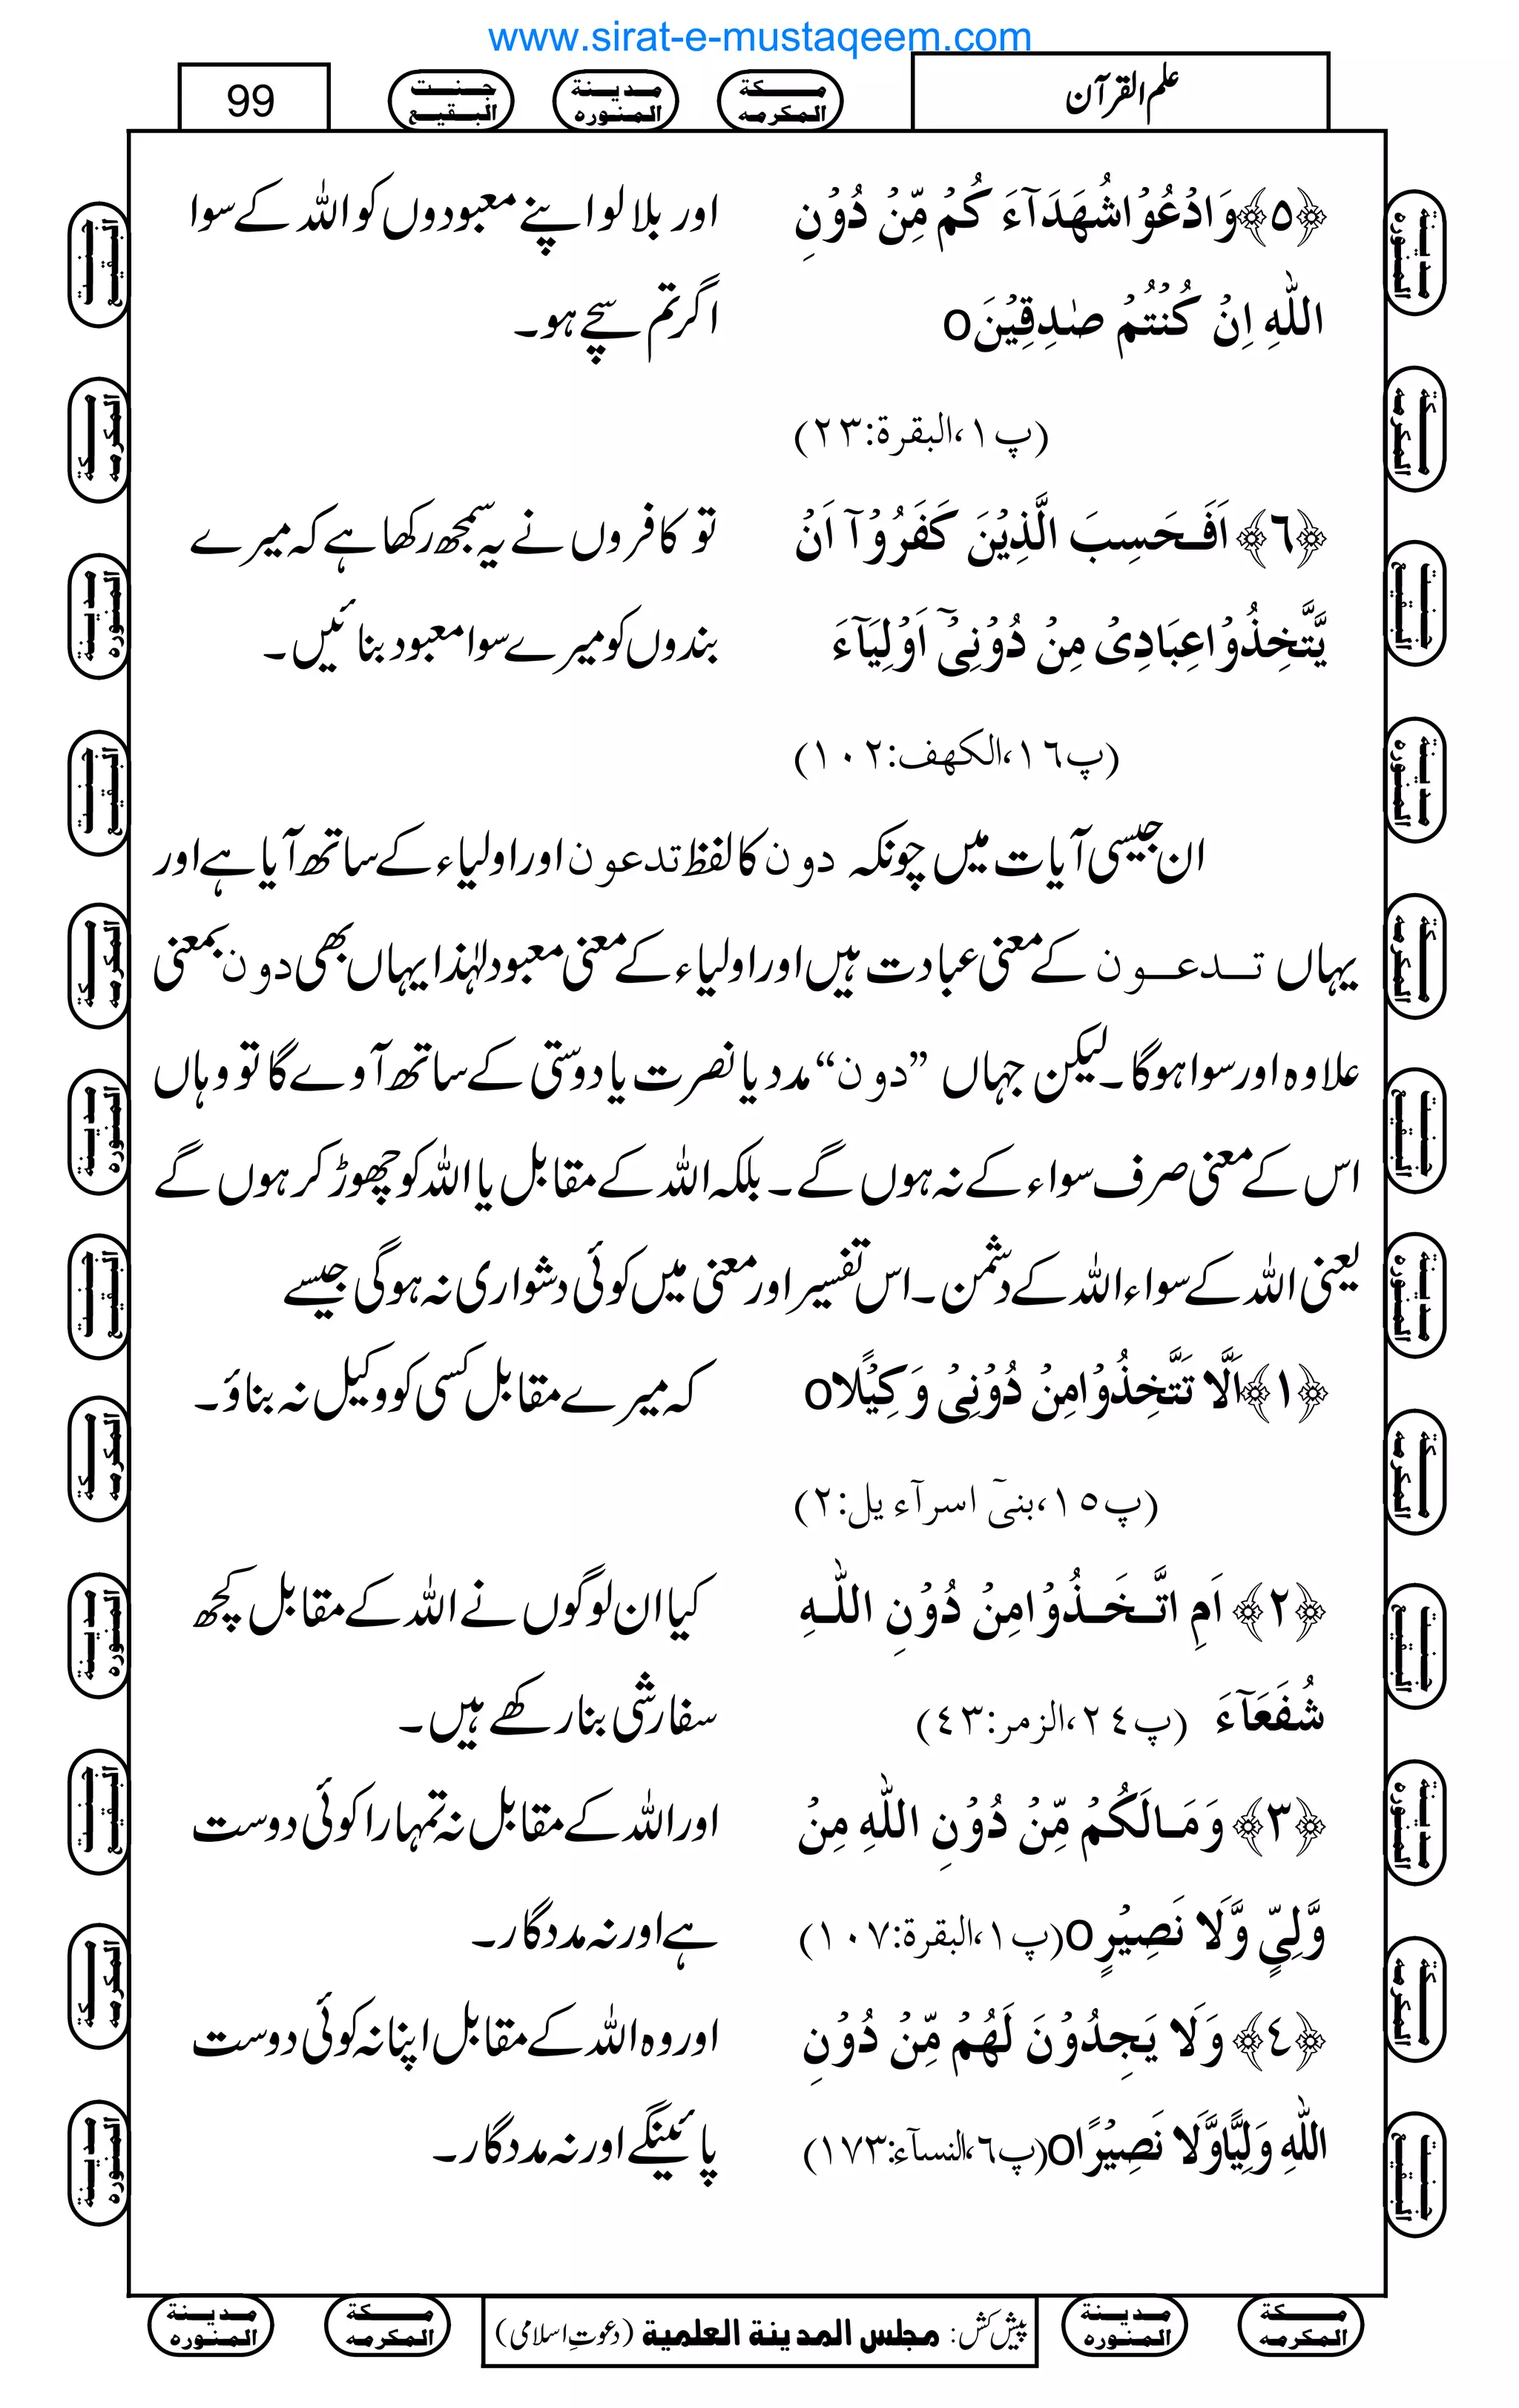 www.sirat-e-mustaqeem.com
علم القرآن
مـكة المكرمه
مدينة المنوره
جنت البقيع
99
﴿٥﴾وَادْعُوْاشُهَدَآءَ كُمْ مِّنْ دُوْنِ اور بلا لو اپنے معبودوں کو اللہ کے سوا
اللّٰهِ اِنْ كُنْتُمْ صٰدِقِيْنَo اگر تم سچے ہو۔
(پ۱،البقرۃ:۲۳)
﴿٦﴾ اَفَحَسِبَ الَّذِيْنَ كَفَرُوْٓا اَنْ تو کافروں نے یہ سمجھ رکھا ہے کہ میرے
يَّتَّخِذُوْاعِبَادِىْ مِنْ دُوْنِىْٓ اَوْلِيَآءَ بندوں کو میرے سوا معبود بنائیں۔
(پ۱٦،الکھف:۱۰۲)
ان جیسی آیات میں چونکہ دون کا لفظ تدعون اور اولیاء کے ساتھ آیا ہے اور
یہاں تدعون کے معنی عبادت ہیں اور اولیاء کے معنی معبود لہٰذا یہاں بھی دون بمعنی
علاوہ اور سوا ہوگا۔ لیکن جہاں ”دون“ مدد یا نصرت یا دوستی کے ساتھ آوے گا تو وہاں
اس کے معنی صرف سواء کے نہ ہوں گے۔ بلکہ اللہ کے مقابل یا اللہ کو چھوڑ کر ہوں گے
یعنی اللہ کے سواء اللہ کے دشمن۔ اس تفسیر اور معنی میں کوئی دشواری نہ ہوگی جیسے
﴿١﴾اَلَّا تَتَّخِذُوْامِنْ دُوْنِىْ وَكِيْلًاo کہ میرے مقابل کسی کو وکیل نہ بناؤ۔
(پ۱٥،بنیٓ اسرآء یل:۲)
﴿٢﴾ اَمِ اتَّخَذُوْامِنْ دُوْنِ اللّٰهِ کیا ان لوگوں نے اللہ کے مقابل کچھ
شُفَعَآءَ (پ۲٤،الزمر:٤۳) سفارشی بنا رکھے ہیں۔
﴿٣﴾ وَمَالَكُمْ مِّنْ دُوْنِ اللّٰهِ مِنْ اور اللہ کے مقابل نہ تمہارا کوئی دوست
وَّلِىٍّ وَّلَا نَصِيْرٍo(پ۱،البقرۃ:۱۰۷) ہے اور نہ مددگار۔
﴿٤﴾ وَلَا يَجِدُوْنَ لَهُمْ مِّنْ دُوْنِ اور وہ اللہ کے مقابل اپنا نہ کوئی دوست
اللّٰهِ وَلِيًّاوَّلَا نَصِيْرًاo(پ٦،النسآء:۱۷۳) پائینگے اور نہ مددگار۔
پیش کش: مجلس المدينة العلمية (دعوتِ اسلامی)